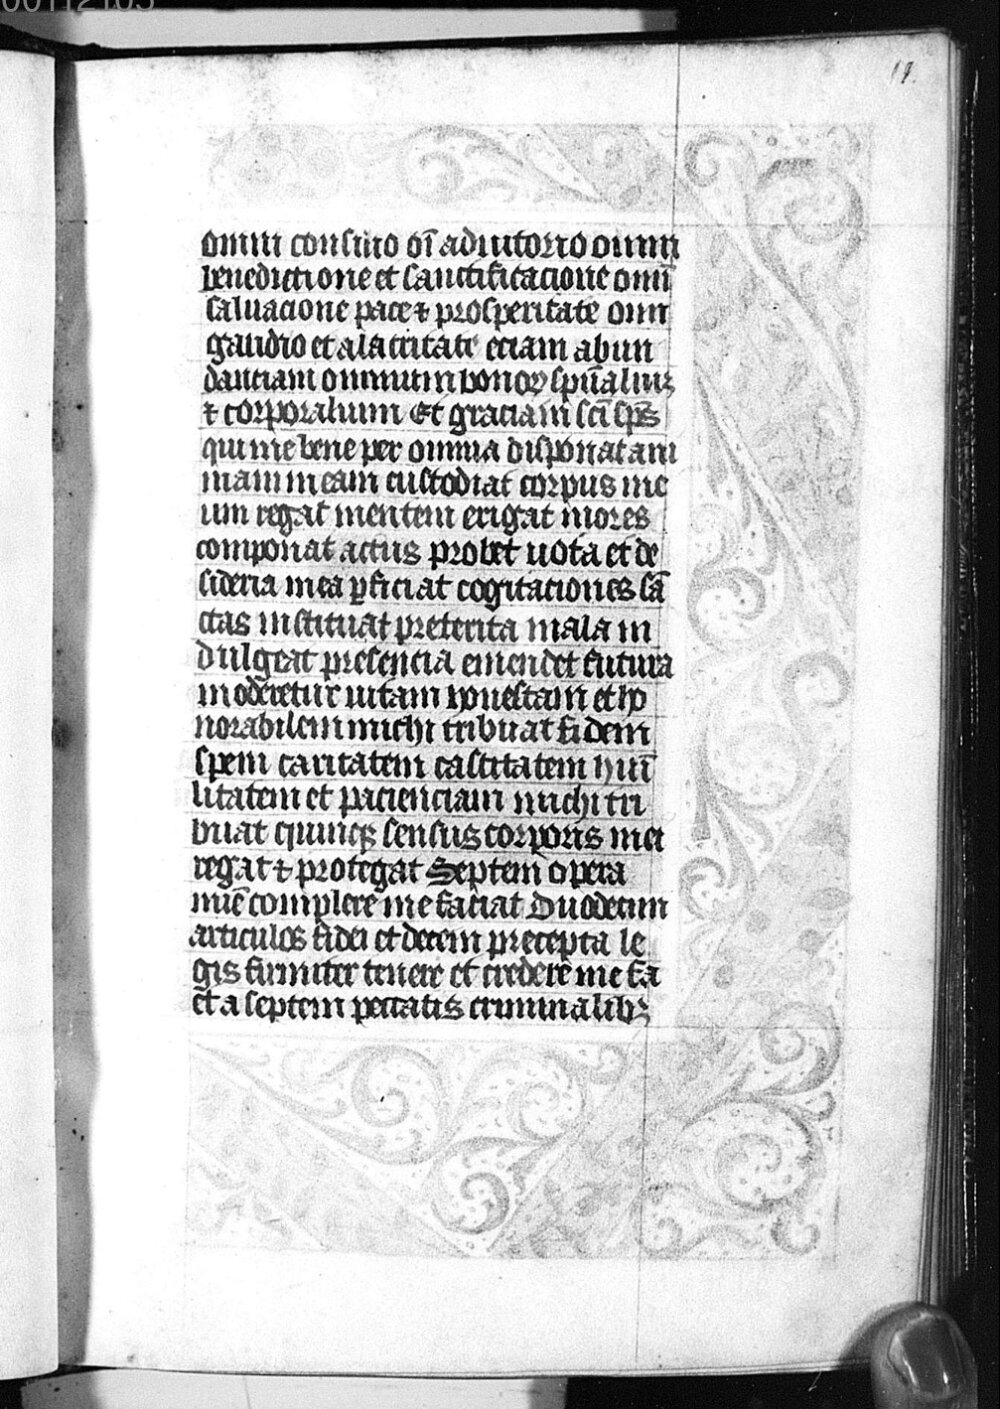 00112105
19.
omni consilio oī adiutorio omni
benedictione et sanctificacione omī
saluacione pace ⁊ prosperitate omni
gaudio et alacritate eciam abun
danciam omnium bonoꝝ spūaliuꝫ
⁊ corporalium Et graciam scī sp̄s
qui me bene per omnia disponat ani
mam meam custodiat corpus me
um regat mentem erigat mores
componat actus probet uota et de
sideria mea ꝑficiat cogitaciones sā
ctas instituat preterita mala in
dulgeat presencia emendet futura
moderetur uitam honestam et ho
norabilem michi tribuat fidem
spem caritatem castitatem humī
litatem et pacienciam michi tri
buat quinqꝫ sensus corporis mei
regat ⁊ protegat Septem opera
mīe complere me faciat Duodecim
articulos fidei et decem precepta le
gis firmiter tenere et credere me fa
et a septem peccatis criminalibꝫ